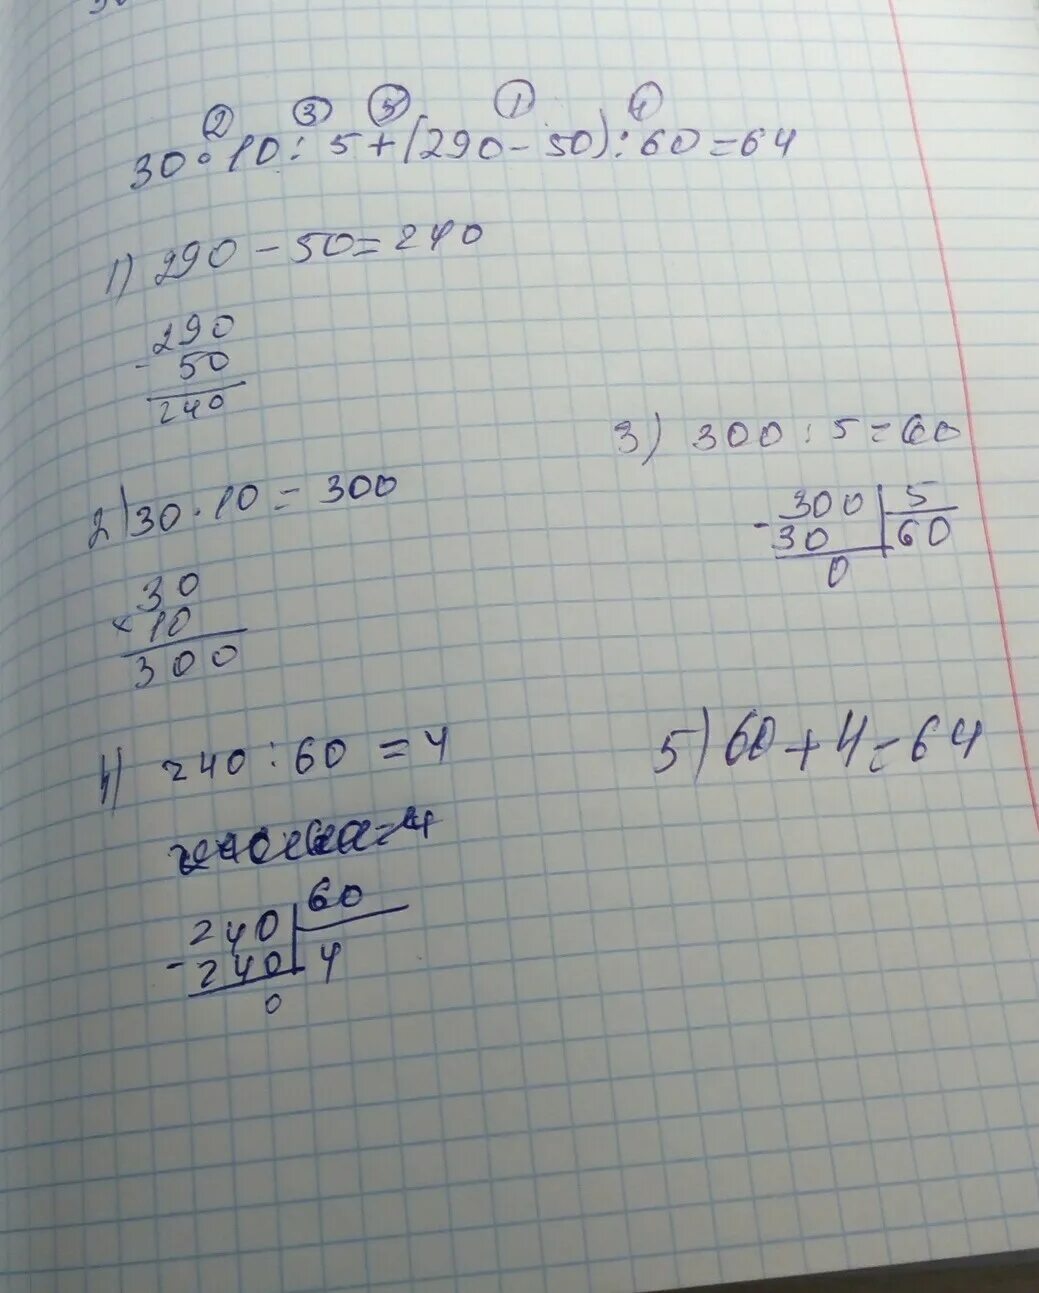 2 3 5 1 4
30 · 10 : 5 + (290 - 50) : 60 = 64
1) 290 - 50 = 240
- 290
50
240
2) 30 · 10 = 300
× 30
10
300
3) 300 : 5 = 60
- 300 | 5
30 | 60
0
4) 240 : 60 = 4
- 240 | 60
240 | 4
0
5) 60 + 4 = 64